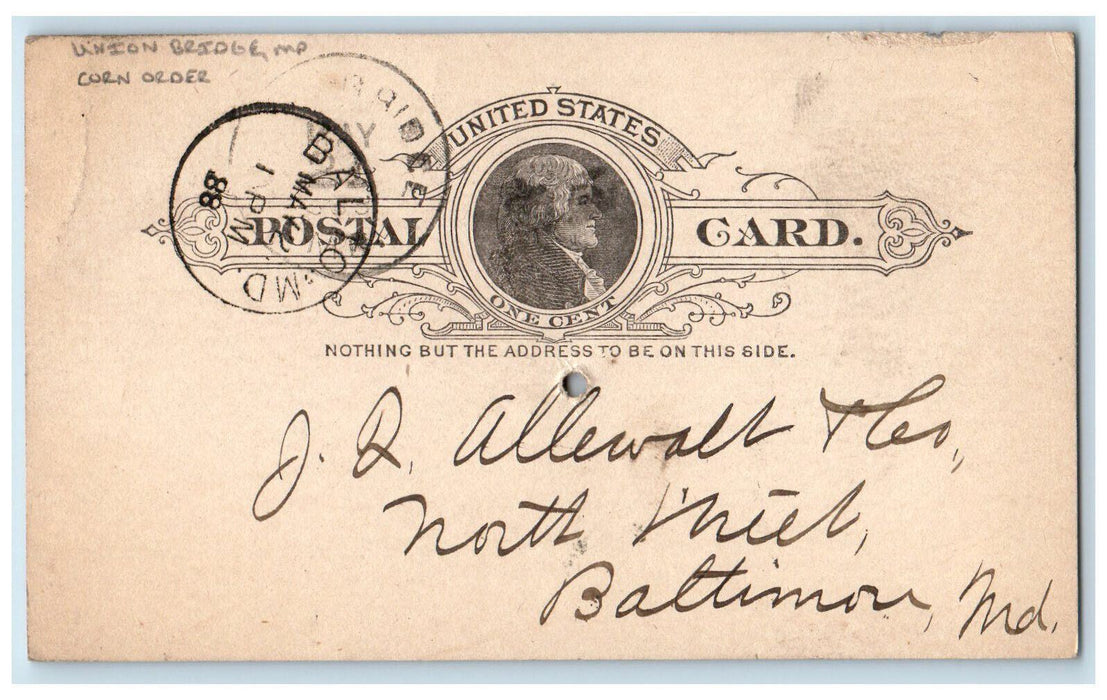 UNION BRIDGE, MD
CORN ORDER
UNITED STATES
POSTAL CARD.
ONE CENT
NOTHING BUT THE ADDRESS TO BE ON THIS SIDE.
BALTO. MD.
MAY
1 PM
88
MAY
J. Q. Allewalt & Co,
North Street,
Baltimore, Md.